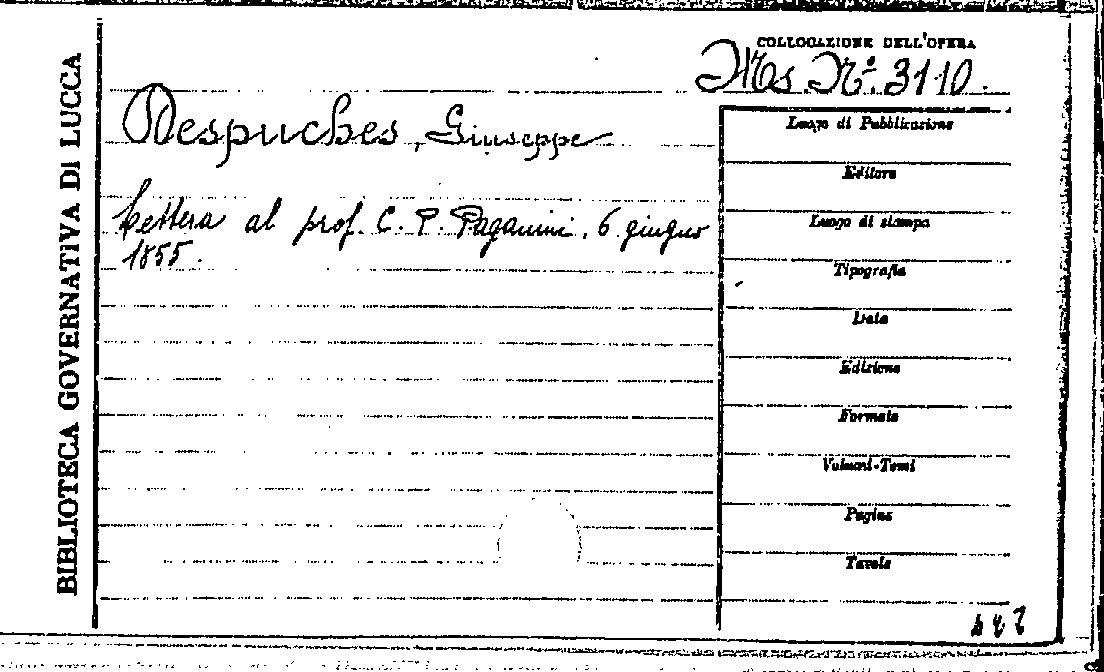 BIBLIOTECA GOVERNATIVA DI LUCCA
COLLOCAZIONE DELL'OPERA
Ms. Nº. 3110.
Despuches, Giuseppe
Lettera al prof. C. P. Paganini, 6 giugno
1855.
Luogo di Pubblicazione
Editore
Luogo di stampa
Tipografia
Data
Edizione
Formato
Volumi-Tomi
Pagine
Tavole